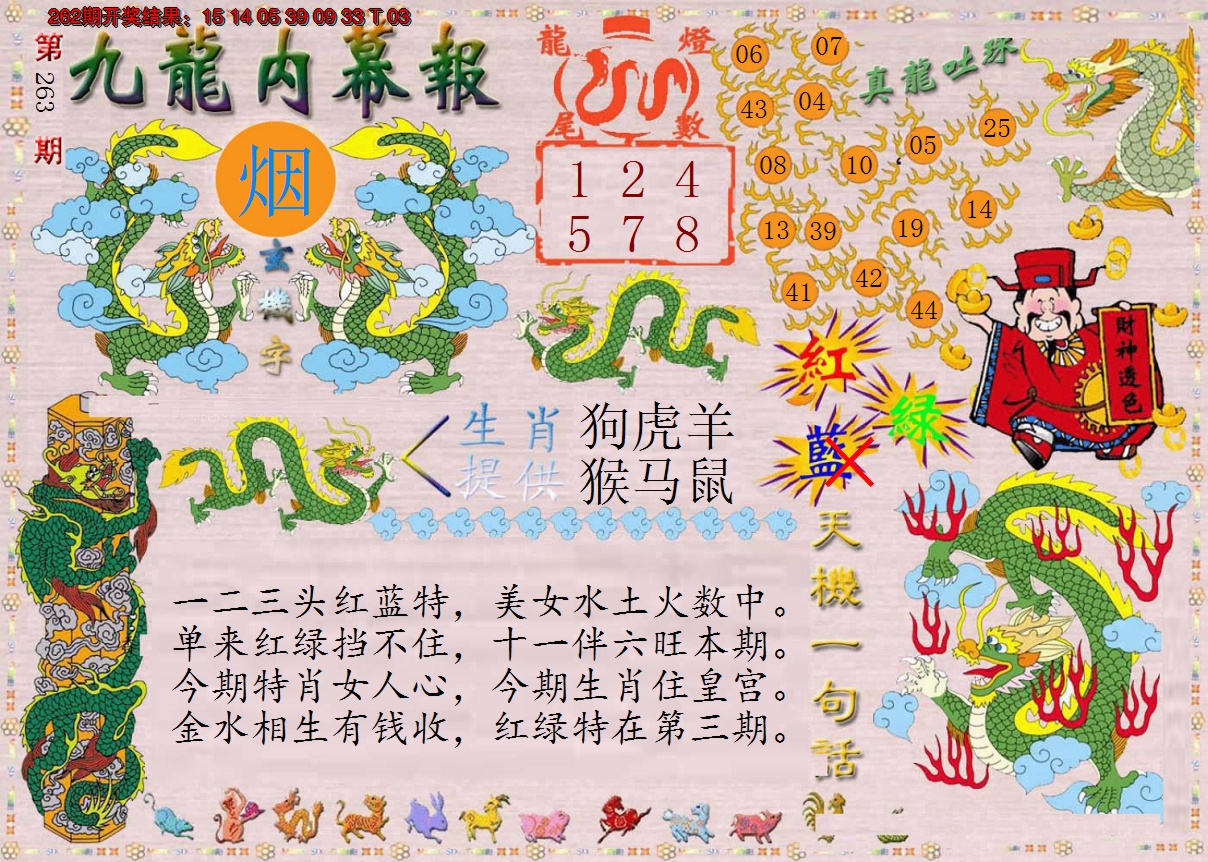 262期开奖结果：15 14 05 39 09 33 T 03
第263期
九龍内幕報
烟
玄機字
龍燈
尾數
1 2 4
5 7 8
真龍吐珠
06 07
43 04
08 10 05 25
13 39 19 14
41 42 44
紅
綠
藍
財神透色
生肖
提供
狗虎羊
猴马鼠
天機一句話
一二三头红蓝特，美女水土火数中。
单来红绿挡不住，十一伴六旺本期。
今期特肖女人心，今期生肖住皇宫。
金水相生有钱收，红绿特在第三期。